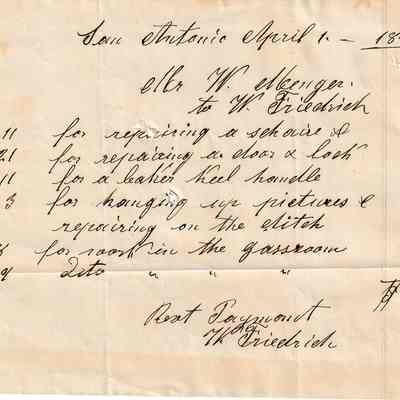 San Antonio April 1. — 18
Mr W. Menger.
to W. Friedrich
11 for repairing a schaire &
21 for repairing a door & lock
11 for a baker Keel handle
3 for hanging up pictures &
repairing on the ditch
for work in the gassroom
9 Dito " " "
Rext Paymont
W. Friedrich